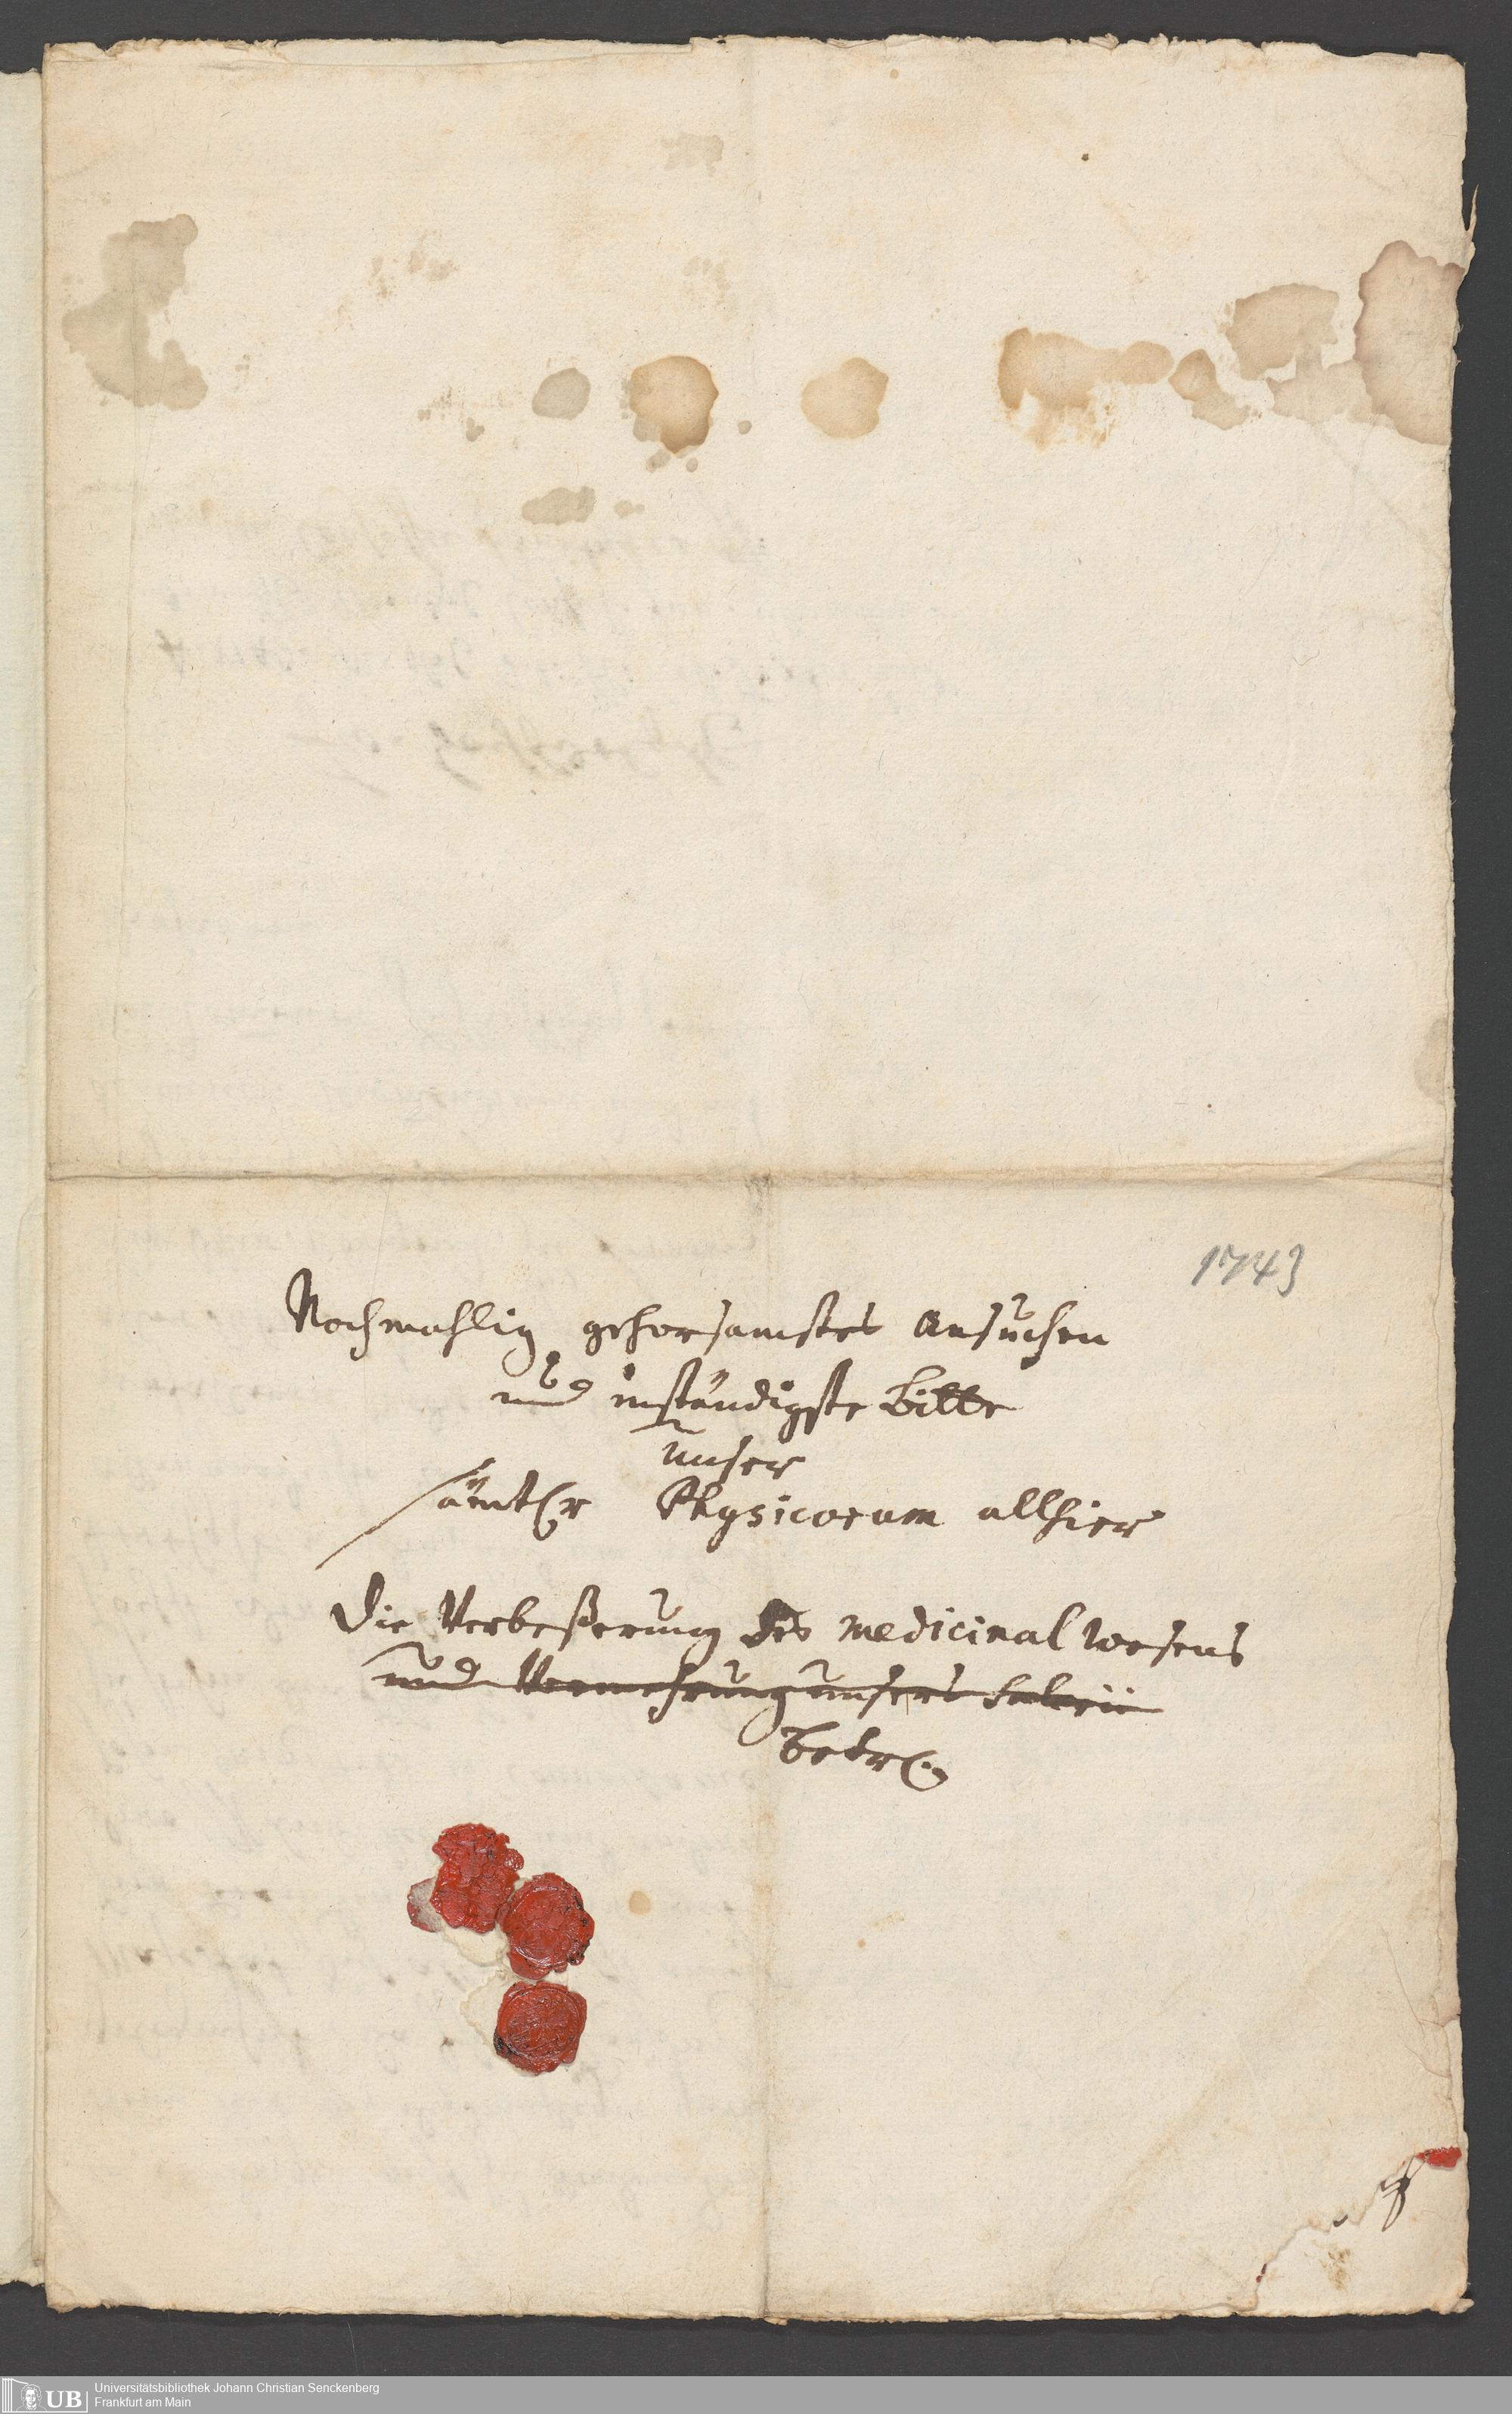 1743
Nochmahlig gehorsamstes Ansuchen
und inständigste Bitte
unser
sämtl. Physicorum allhier
Die Verbeßerung des medicinal wesens
und Vermehrung unsers Salarii
betr.
UB
Universitätsbibliothek Johann Christian Senckenberg
Frankfurt am Main